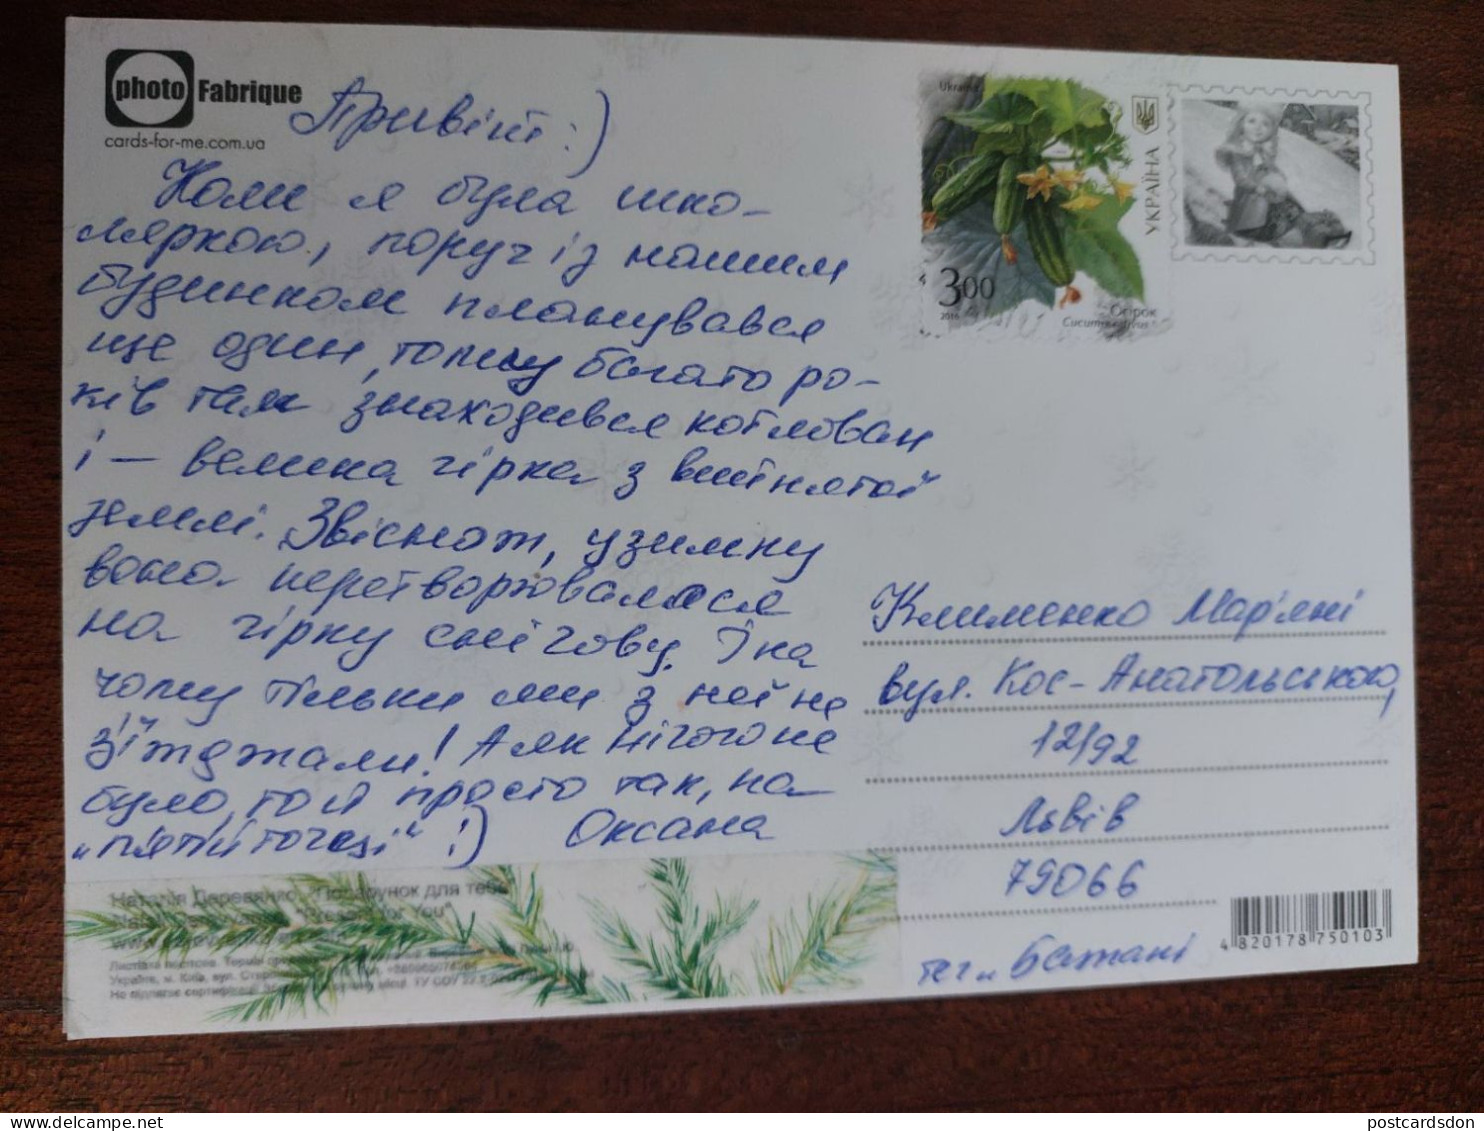 photo Fabrique
cards-for-me.com.ua
Привіт :)
Коли я була шко-
ляркою, поруч із нашим
будинком планувався
ще один, тому багато ро-
ків там знаходився котлован
і – велика гірка з вийнятої
землі. Звісно ж, узимку
вона перетворювалася
на гірку снігову. І на
чому тільки ми з неї не
з'їжджали! А як нічого не
було, то й просто так, на
„п'ятій точці" :) Оксана
Ukraine
УКРАЇНА
3.00
2016
Огірок
Cucumis sativus
Клименко Мар'яні
вул. Кос-Анатольського,
12/92
Львів
79066
4 820178 750103
Наталія Деревянко "Подарунок для тебе"
"Present for You"